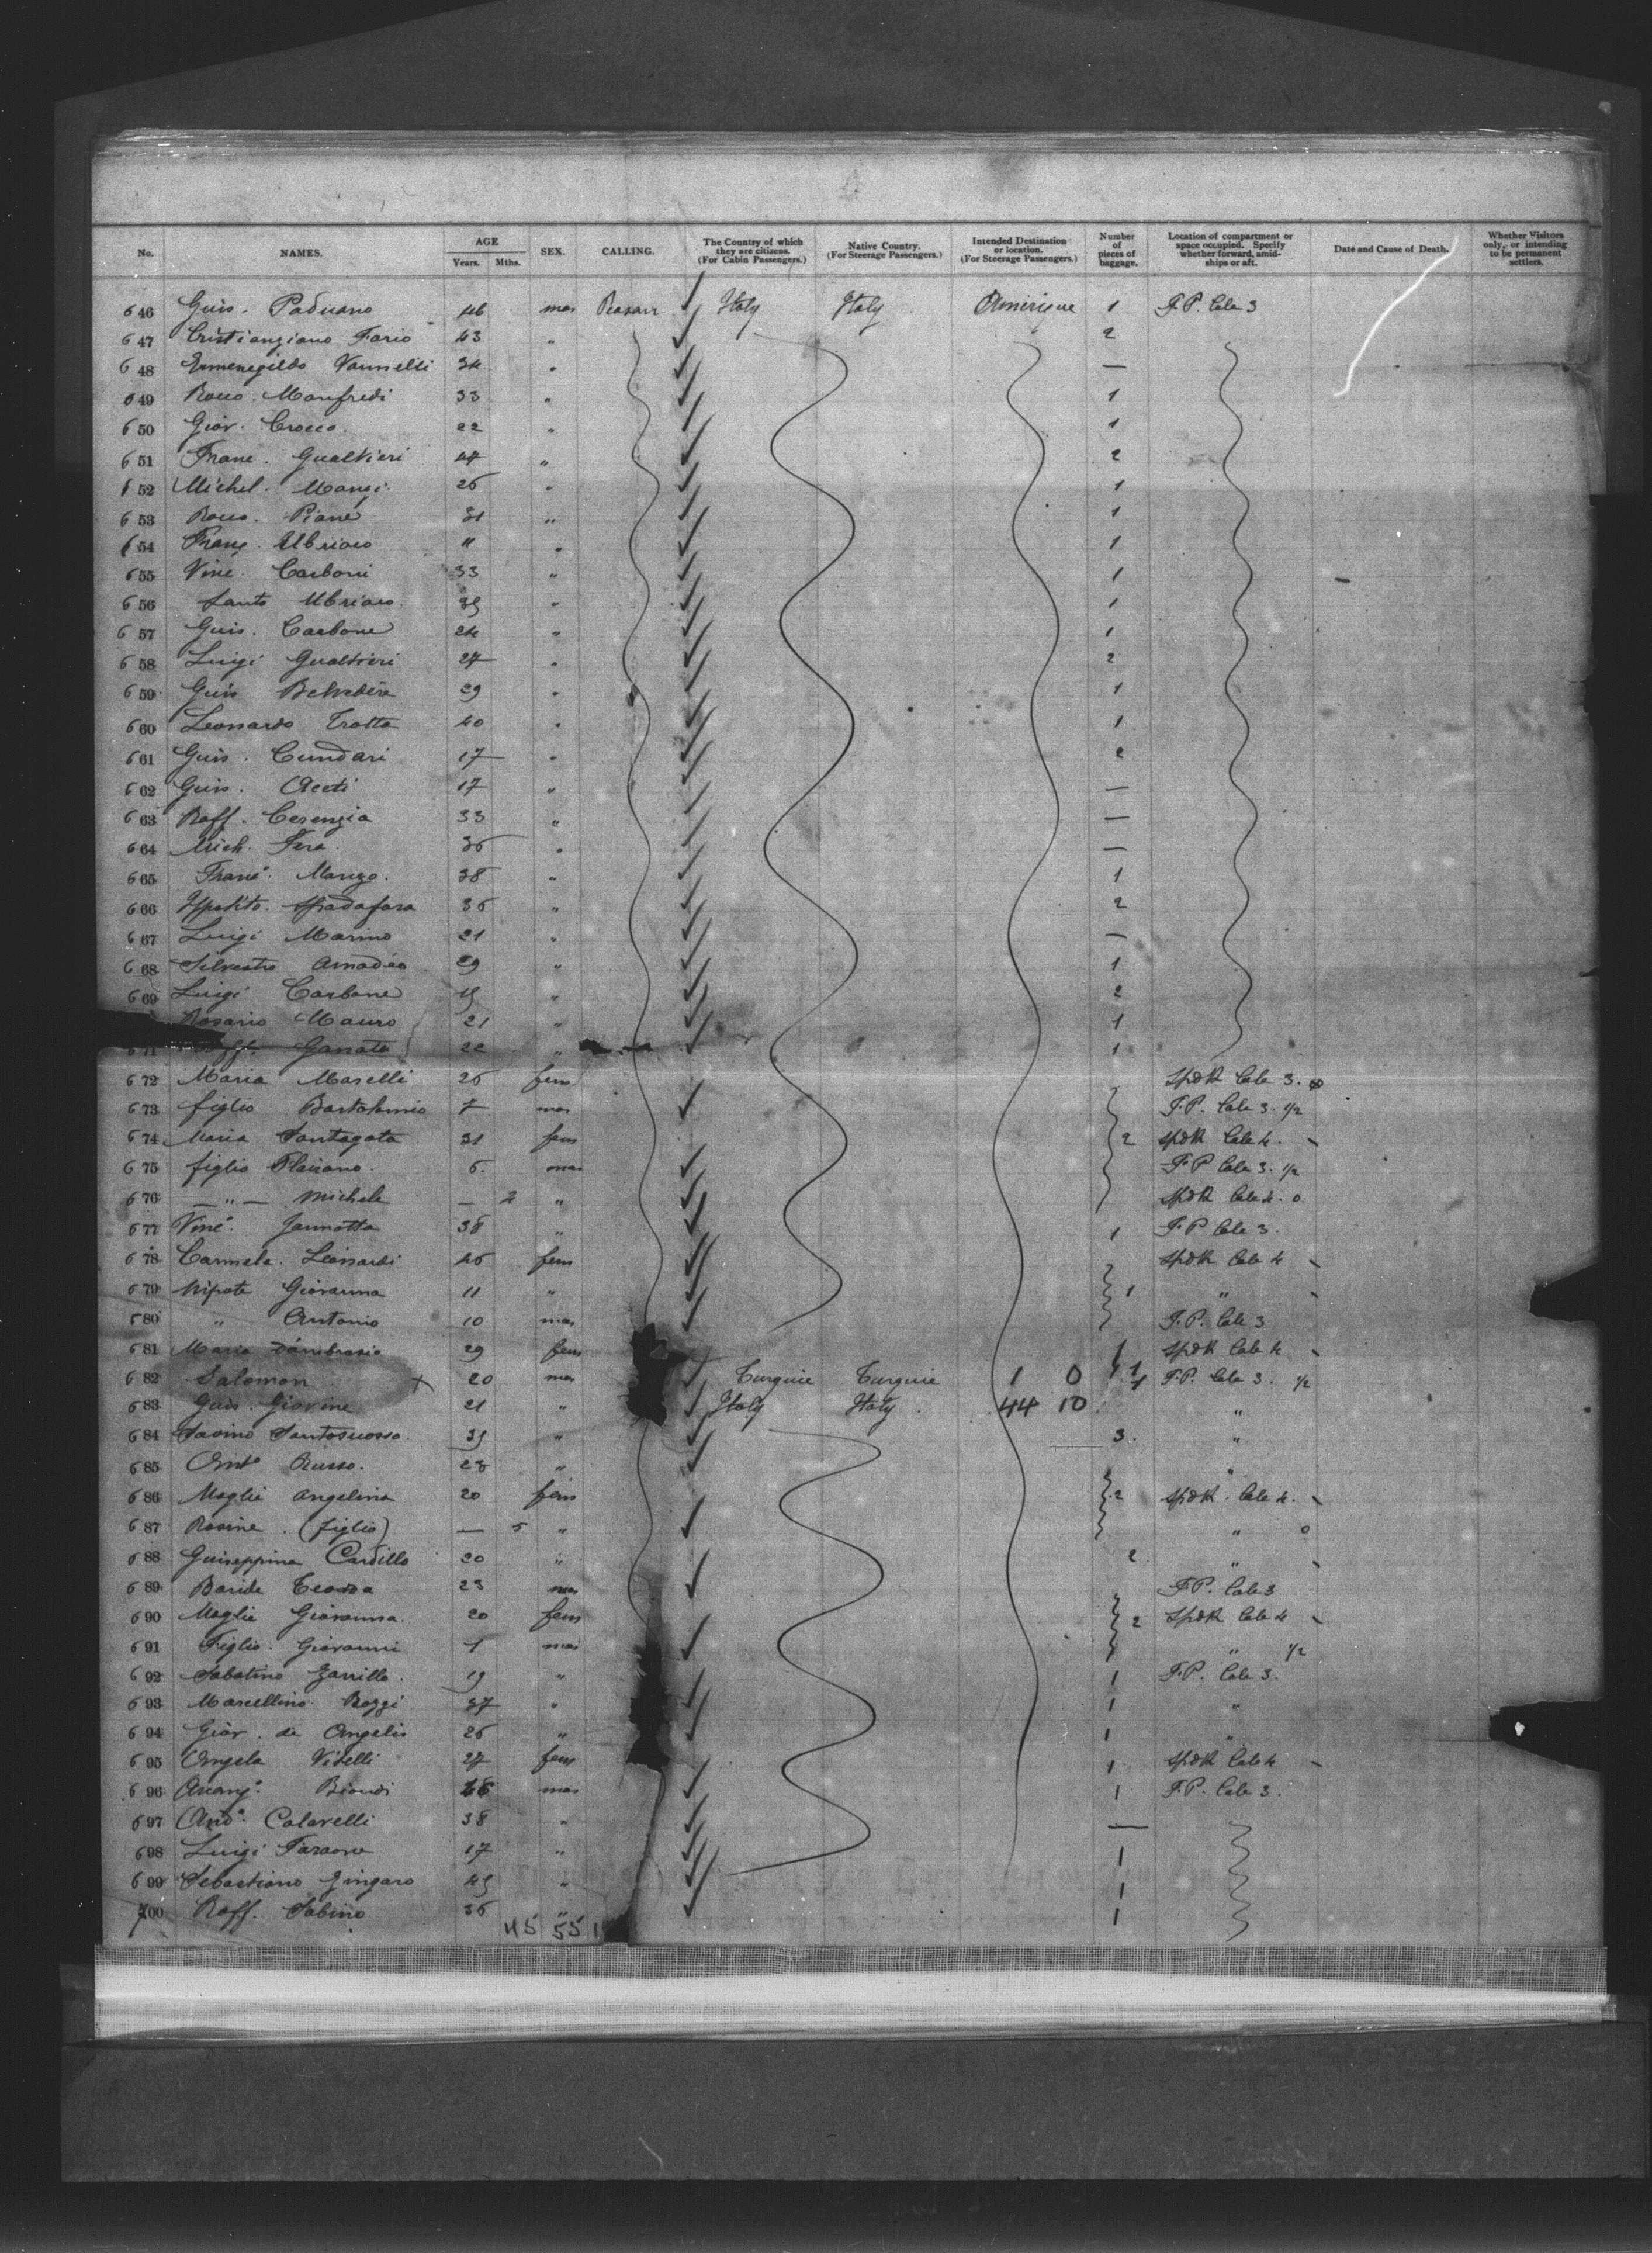 No. NAMES. AGE Years. Mths. SEX. CALLING. The Country of which they are citizens. (For Cabin Passengers.) Native Country. (For Steerage Passengers.) Intended Destination or location. (For Steerage Passengers.) Number of pieces of baggage. Location of compartment or space occupied. Specify whether forward, amidships or aft. Date and Cause of Death. Whether Visitors only, or intending to be permanent settlers.
646 Guis. Paduano 46 mas Italy Italy Amerique 1 F.P. Cale 3
647 Cristianziano Fario 43 " 2
648 Ermenegildo Vannelli 34 " —
649 Rocco Manfredi 33 " 1
650 Giov. Crocco 22 " 1
651 Franc. Gualtieri 47 " 2
652 Michel. Mangi 26 " 1
653 Rocco. Piane 31 " 1
654 Franç. Ubriaco " " 1
655 Vinc. Carboni 33 " 1
656 Santo Ubriaco 39 " 1
657 Guis. Carbone 24 " 1
658 Luigi Gualtieri 27 " 2
659 Guis Belvedere 29 " 1
660 Leonardo Trotta 40 " 1
661 Guis. Cundari 17 " 2
662 Guis. Aceti 17 " —
663 Raff. Cerenzia 33 " —
664 Mich. Fera 36 " —
665 Franc. Mango. 38 " 1
666 Ippolito Spadafara 36 " 2
667 Luigi Marino 21 " —
668 Silvestro Amadeo 29 " 1
669 Luigi Carbone 19 " 2
Rosario Mauro 21 " 1
671 Ganata 22 " 1
672 Maria Maselli 26 fem Spdk Cale 3.
673 figlio Bartolomio 7 mas F.P. Cale 3. 1/2
674 Maria Santagata 31 fem 2 Spdk Cale 4.
675 figlio Flaviano. 6. mas F.P Cale 3. 1/2
676 — " — Michele — 2 " Spdk Cale 4. 0
677 Vinc. Jannotta 38 " 1 F.P Cale 3.
678 Carmela. Leonardi 46 fem Spdk Cale 4
679 Nipote Giovanna 11 " 1 "
680 " Antonio 10 mas F.P. Cale 3
681 Maria D'ambrosio 29 fem 1 Spdk Cale 4
682 Salomon + 20 mas Turquie Turquie 1 0 1 F.P. Cale 3. 1/2
683 Guis. Giovine 21 " Italy Italy 44 10 "
684 Savino Santosuosso. 39 " 3. "
685 Ant° Russo. 28 " "
686 Moglie Angelina 20 fem 2 Spdk. Cale 4.
687 Rosine. (figlio) — 5 " " 0
688 Guiseppina Cardillo 20 " 2 "
689 Baride 23 mas F.P. Cale 3
690 Moglie Giovanna 20 fem 2 Spdk Cale 4
691 Figlio. Giovanni 1 mas " 1/2
692 Sabatino Zarrillo. 19 " 1 F.P. Cale 3.
693 Marcellino Boggi 37 " 1 "
694 Giov. de Angelis 26 " 1 "
695 Angela Vitelli 27 fem 1 Spdk Cale 4
696 Biondi mas 1 F.P. Cale 3.
697 And° Calarelli 38 " —
698 Luigi Faraone 17 " 1
699 Sebastiano Zingaro 49 " 1
700 Raff. Sabino 36 " 1
45 55 1